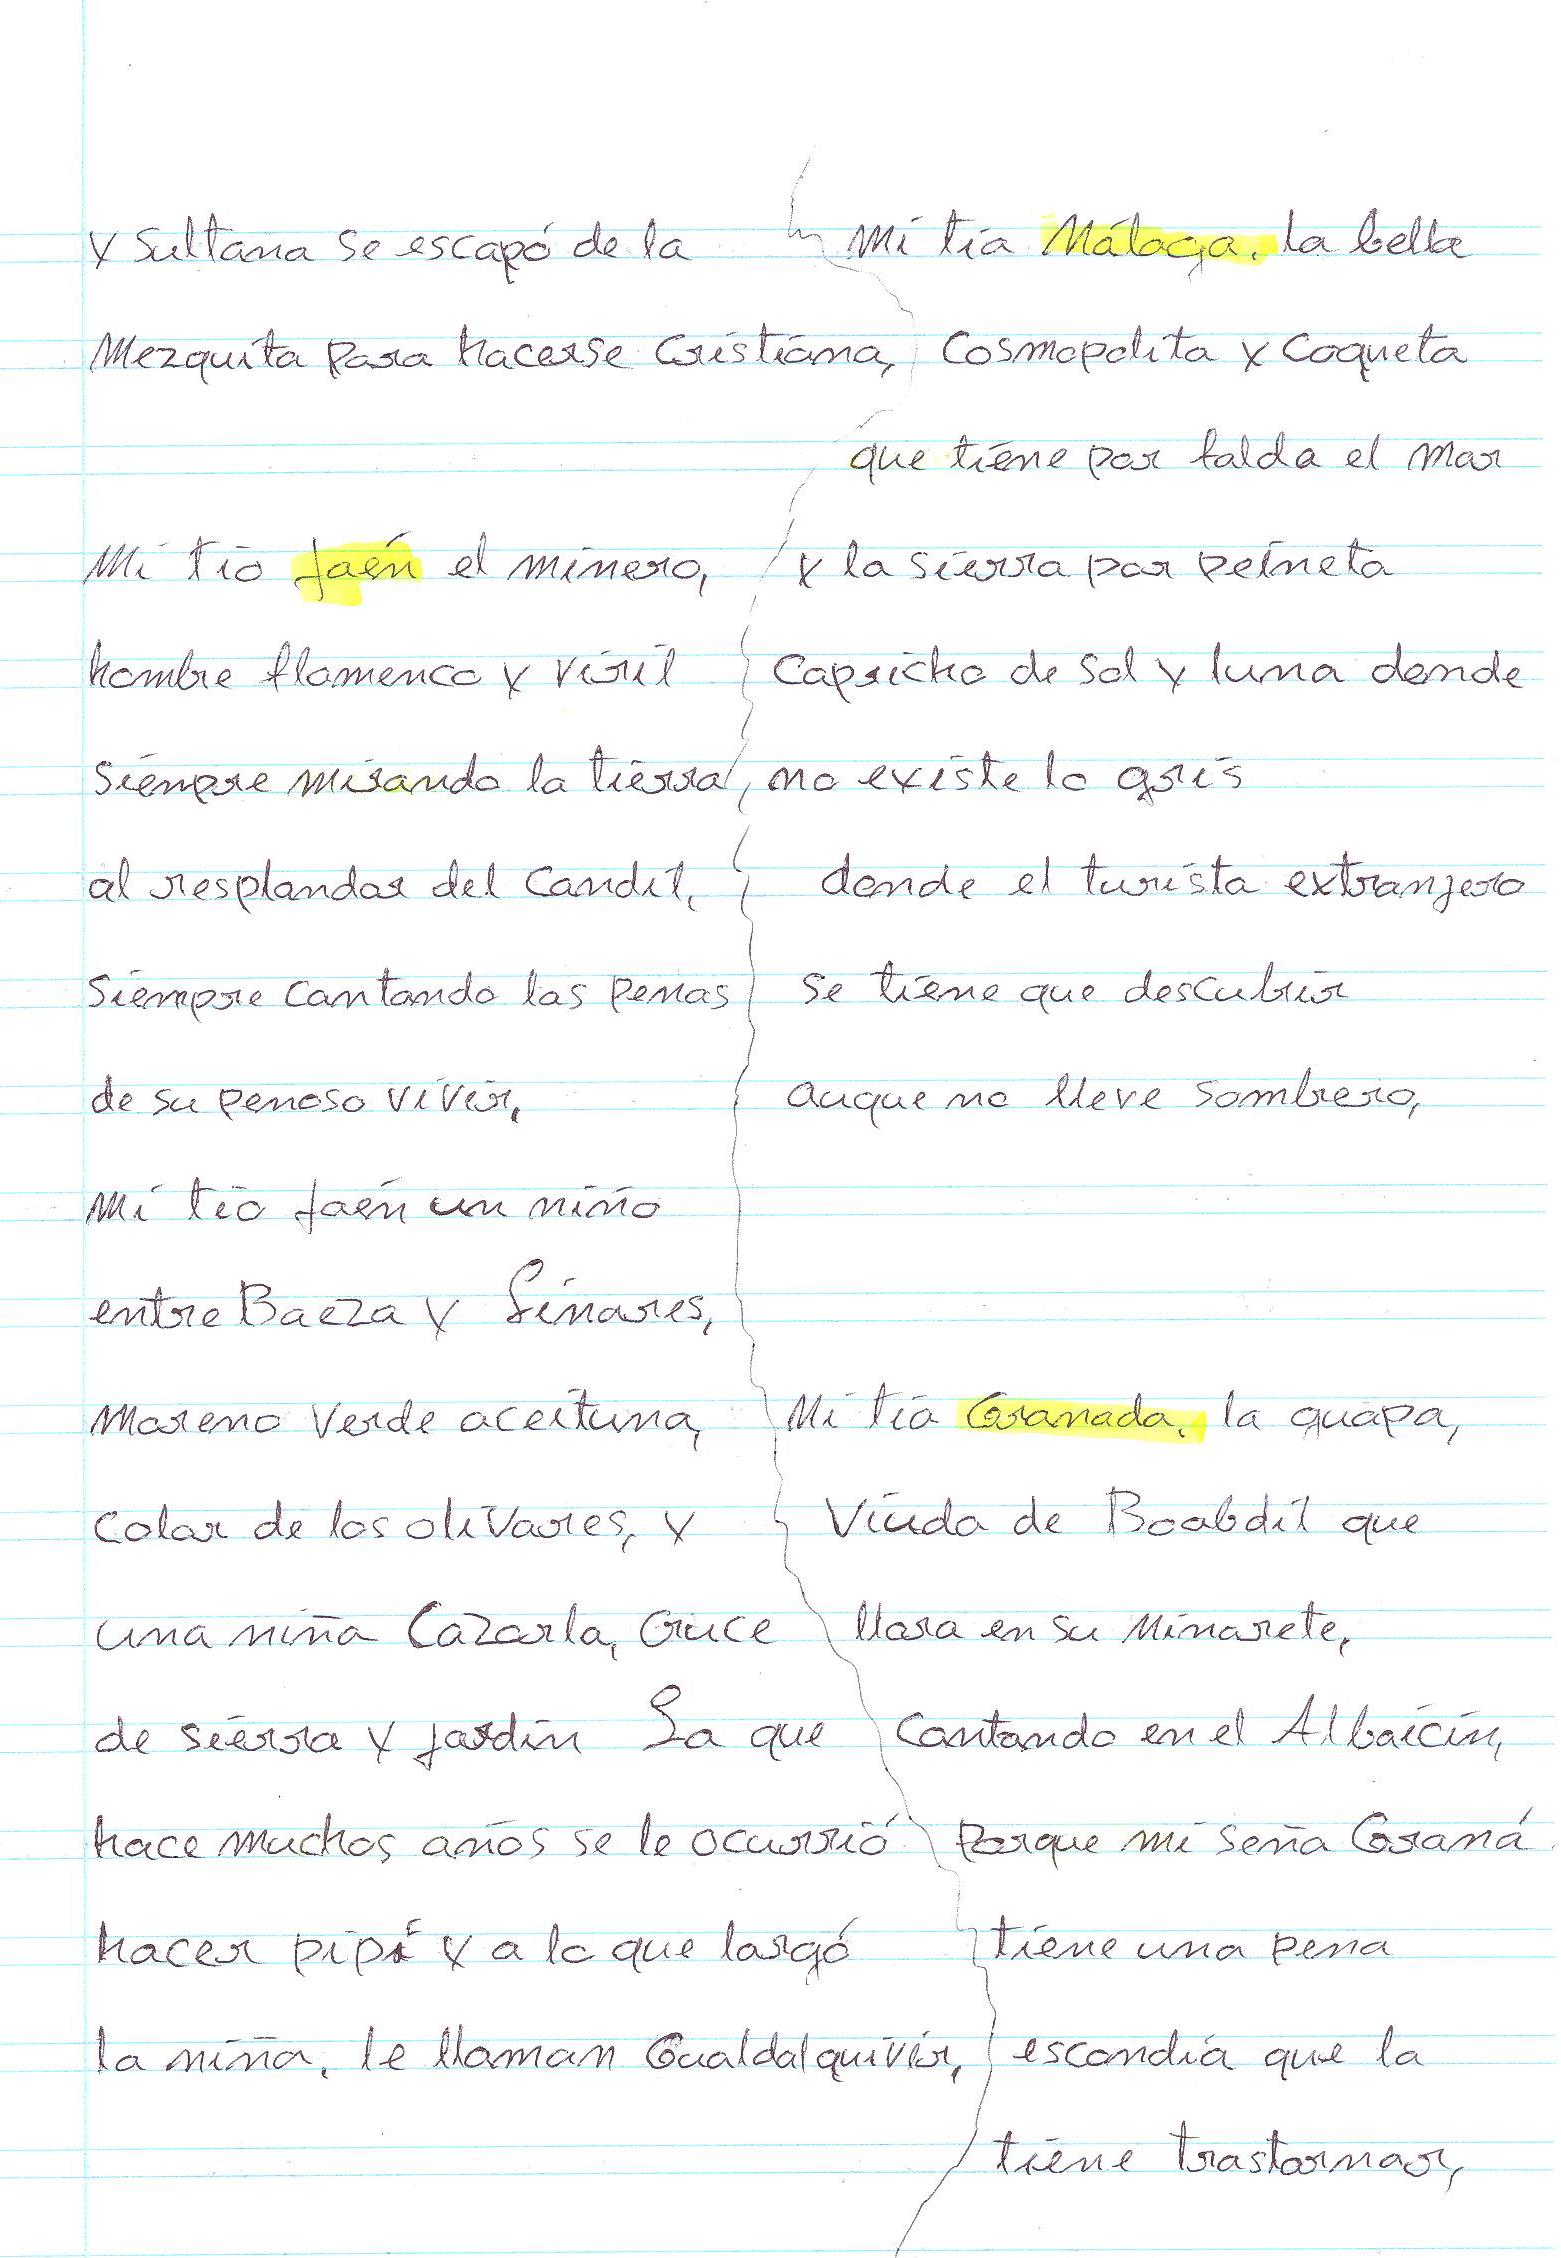 y Sultana se escapó de la
Mezquita para hacerse Cristiana,
Mi tio Jaén el minero,
hombre flamenco y viril
siempre mirando la tierra,
al resplandor del Candil,
siempre cantando las penas
de su penoso vivir,
Mi tio Jaén un niño
entre Baeza y Linares,
Moreno verde aceituna,
color de los olivares, y
una niña Cazorla, Cruce
de sierra y jardin La que
hace muchos años se le ocurrió
hacer pipí y a lo que largó
la niña, le llaman Gualdalquivir,
Mi tia Málaga, la bella
Cosmopolita y Coqueta
que tiene por falda el mar
y la sierra por peineta
Capricho de Sol y luna donde
no existe lo gris
donde el turista extranjero
se tiene que descubrir
auque no lleve sombrero,
Mi tia Granada, la guapa,
Viuda de Boabdil que
llora en su Minarete,
Cantando en el Albaicin,
Porque mi seña Graná
tiene una pena
escondia que la
tiene trastornar,